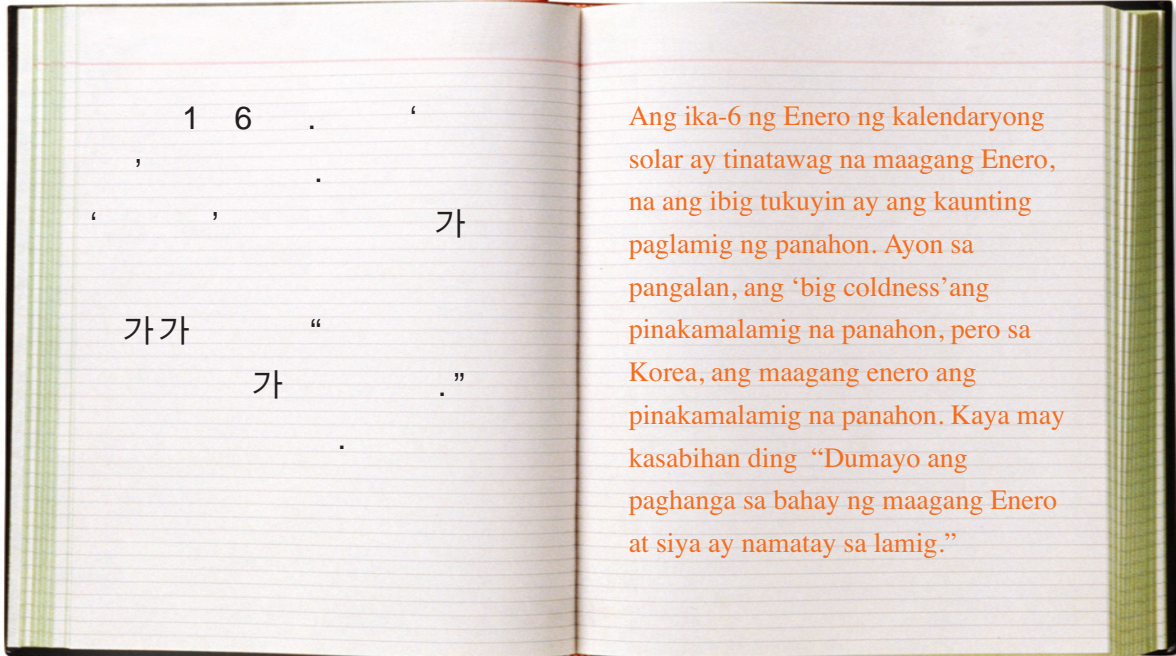 1 6 . ‘
’ .
‘ ’ 가
가가 “
가 .”
.
Ang ika-6 ng Enero ng kalendaryong
solar ay tinatawag na maagang Enero,
na ang ibig tukuyin ay ang kaunting
paglamig ng panahon. Ayon sa
pangalan, ang ‘big coldness’ang
pinakamalamig na panahon, pero sa
Korea, ang maagang enero ang
pinakamalamig na panahon. Kaya may
kasabihan ding “Dumayo ang
paghanga sa bahay ng maagang Enero
at siya ay namatay sa lamig.”